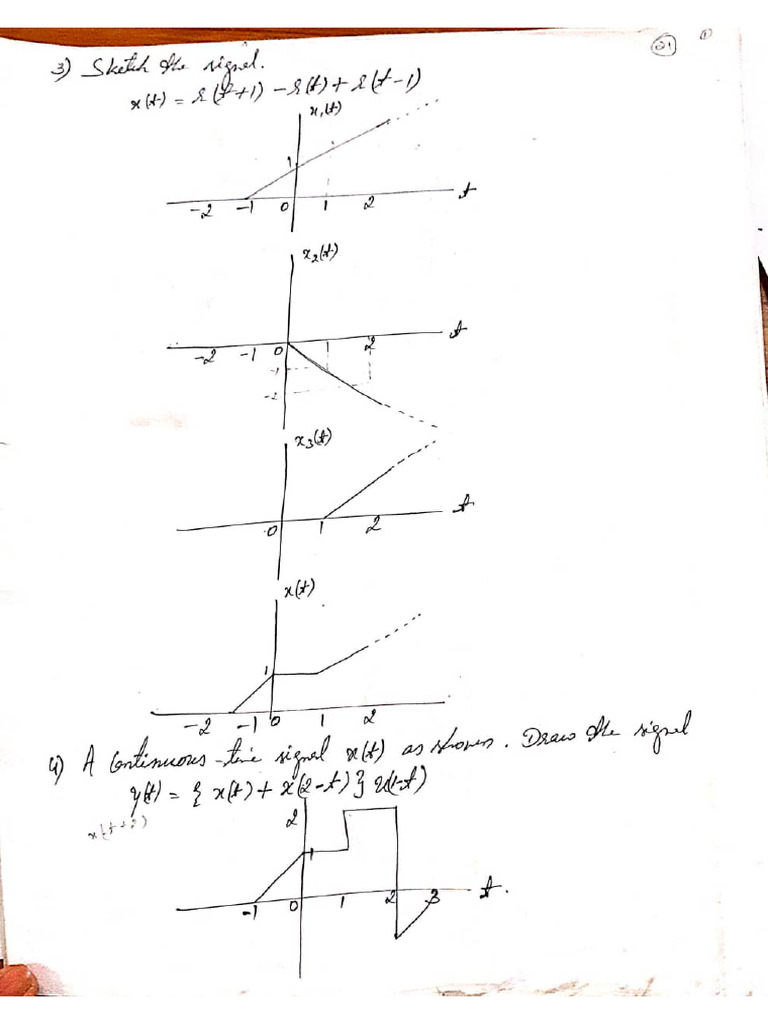 21
1
3) Sketch the signal.
x(t) = r(t+1) - r(t) + r(t-1)
x₁(t)
1
-2 -1 0 1 2 t
x₂(t)
-2 -1 0 1 2 t
-1
-2
x₃(t)
0 1 2 t
x(t)
1
-2 -1 0 1 2
4) A Continuous-time signal x(t) as shown. Draw the signal
y(t) = { x(t) + x(2-t) } u(1-t)
2
1
-1 0 1 2 3 t.